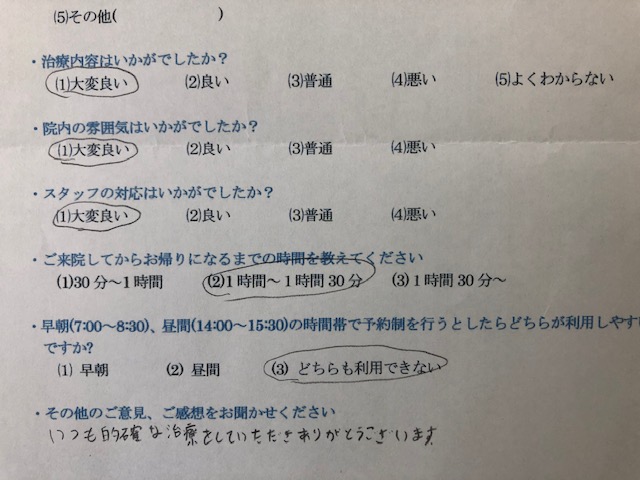 (5)その他(　　　　　　　　)
・治療内容はいかがでしたか？
(1)大変良い　(2)良い　(3)普通　(4)悪い　(5)よくわからない
・院内の雰囲気はいかがでしたか？
(1)大変良い　(2)良い　(3)普通　(4)悪い
・スタッフの対応はいかがでしたか？
(1)大変良い　(2)良い　(3)普通　(4)悪い
・ご来院してからお帰りになるまでの時間を教えてください
(1)30分〜1時間　(2)1時間〜1時間30分　(3)1時間30分〜
・早朝(7:00〜8:30)、昼間(14:00〜15:30)の時間帯で予約制を行うとしたらどちらが利用しやす
ですか?
(1) 早朝　(2) 昼間　(3) どちらも利用できない
・その他のご意見、ご感想をお聞かせください
いつも的確な治療をしていただきありがとうございます